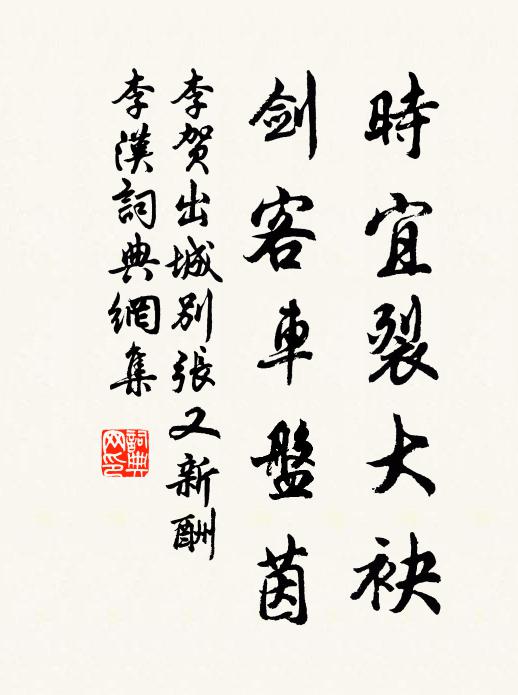 時宜裂大袂
劍客車盤茵
李賀出城別張又新酬
李漢詞典網集
詞典网印